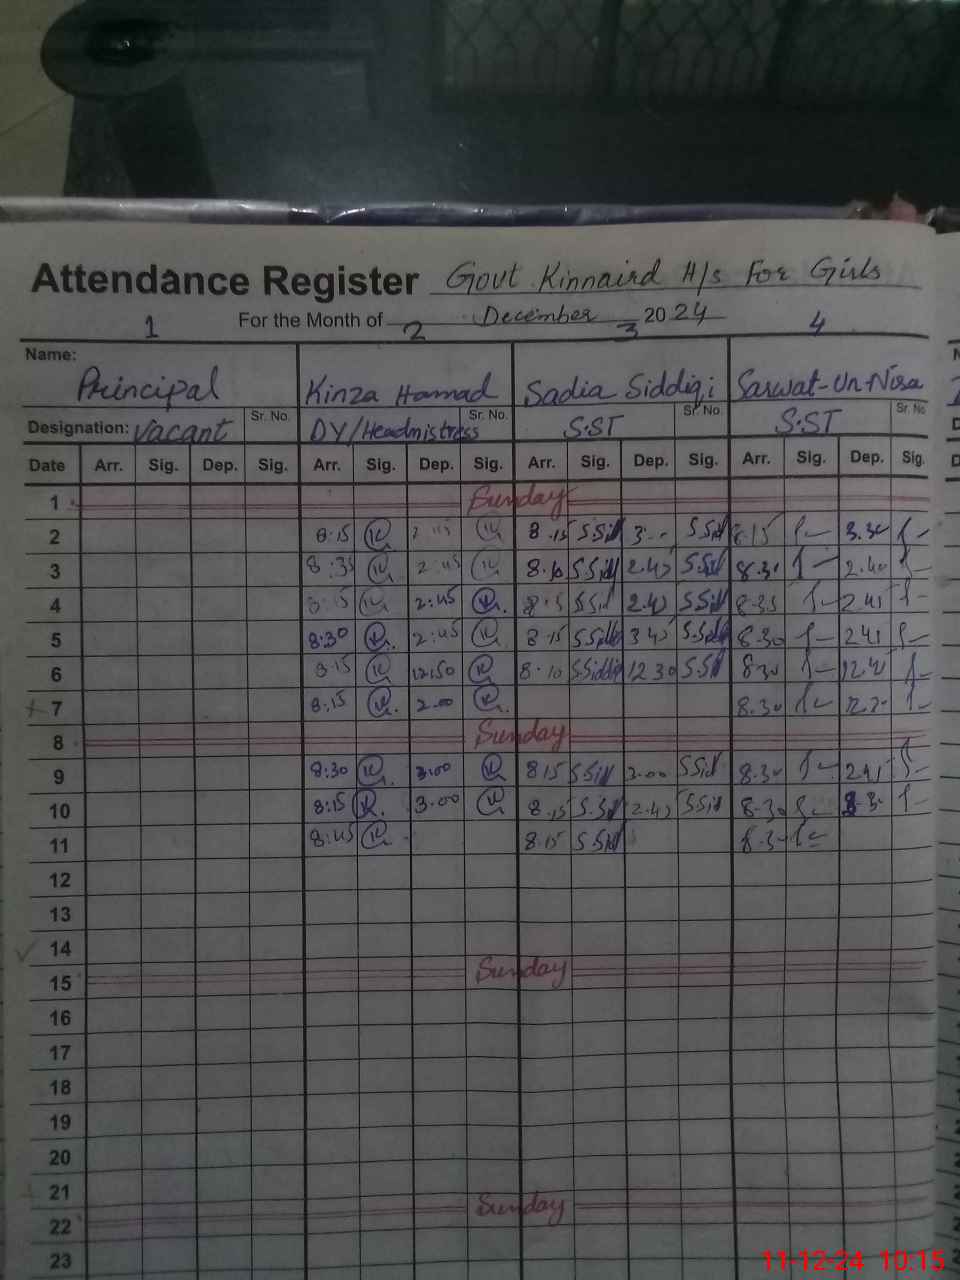 Attendance Register Govt Kinnaird H/s For Girls
For the Month of December 2024
1 2 3 4
Name: Principal Kinza Hamad Sadia Siddiqi Sarwat-Un-Nisa
Designation: Vacant Sr. No. DY/Headmistress Sr. No. S.ST Sr. No. S.ST Sr. No.
Date Arr. Sig. Dep. Sig. Arr. Sig. Dep. Sig. Arr. Sig. Dep. Sig. Arr. Sig. Dep. Sig.
1 Sunday
2 8:15 8.15 S.Sid S.Sid 8-15 3.30
3 8:35 2:45 S.Sid 2.45 S.Sid 8.30 2.40
4 8:15 2:45 S.Sid 2.45 S.Sid 8-35 2.45
5 8:30 2:45 8.15 S.Sid 3.45 S.Sid 8.30
6 8:15 12:50 8.10 S.Siddiq 12.30 S.Sid 8.30
7 8:15 2.00 8.30
8 Sunday
9 8:30 3:00 8.15 S.Sid 3.00 S.Sid 8.30
10 8:15 3.00 8.15 S.Sid 2.45 S.Sid 8-30
11 8:45 8.15 S.Sid 8-30
12
13
14
15 Sunday
16
17
18
19
20
21
22 Sunday
23
11-12-24 10:15